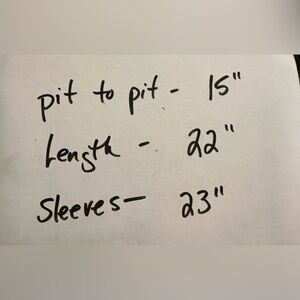 pit to pit - 15"
Length - 22"
Sleeves- 23"